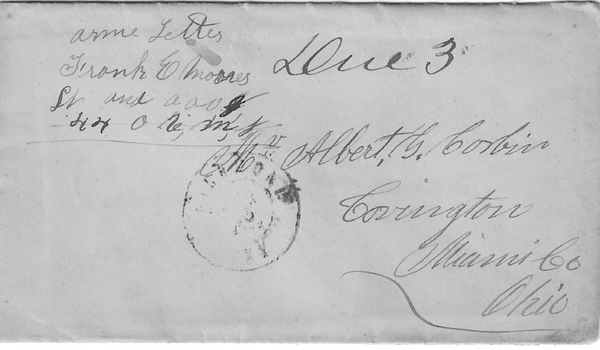 arme Letter
Frank E Moores
Lt and a a a g
44 O V M I
Due 3
Mr Albert, G. Corbin
Covington
Miami Co
Ohio